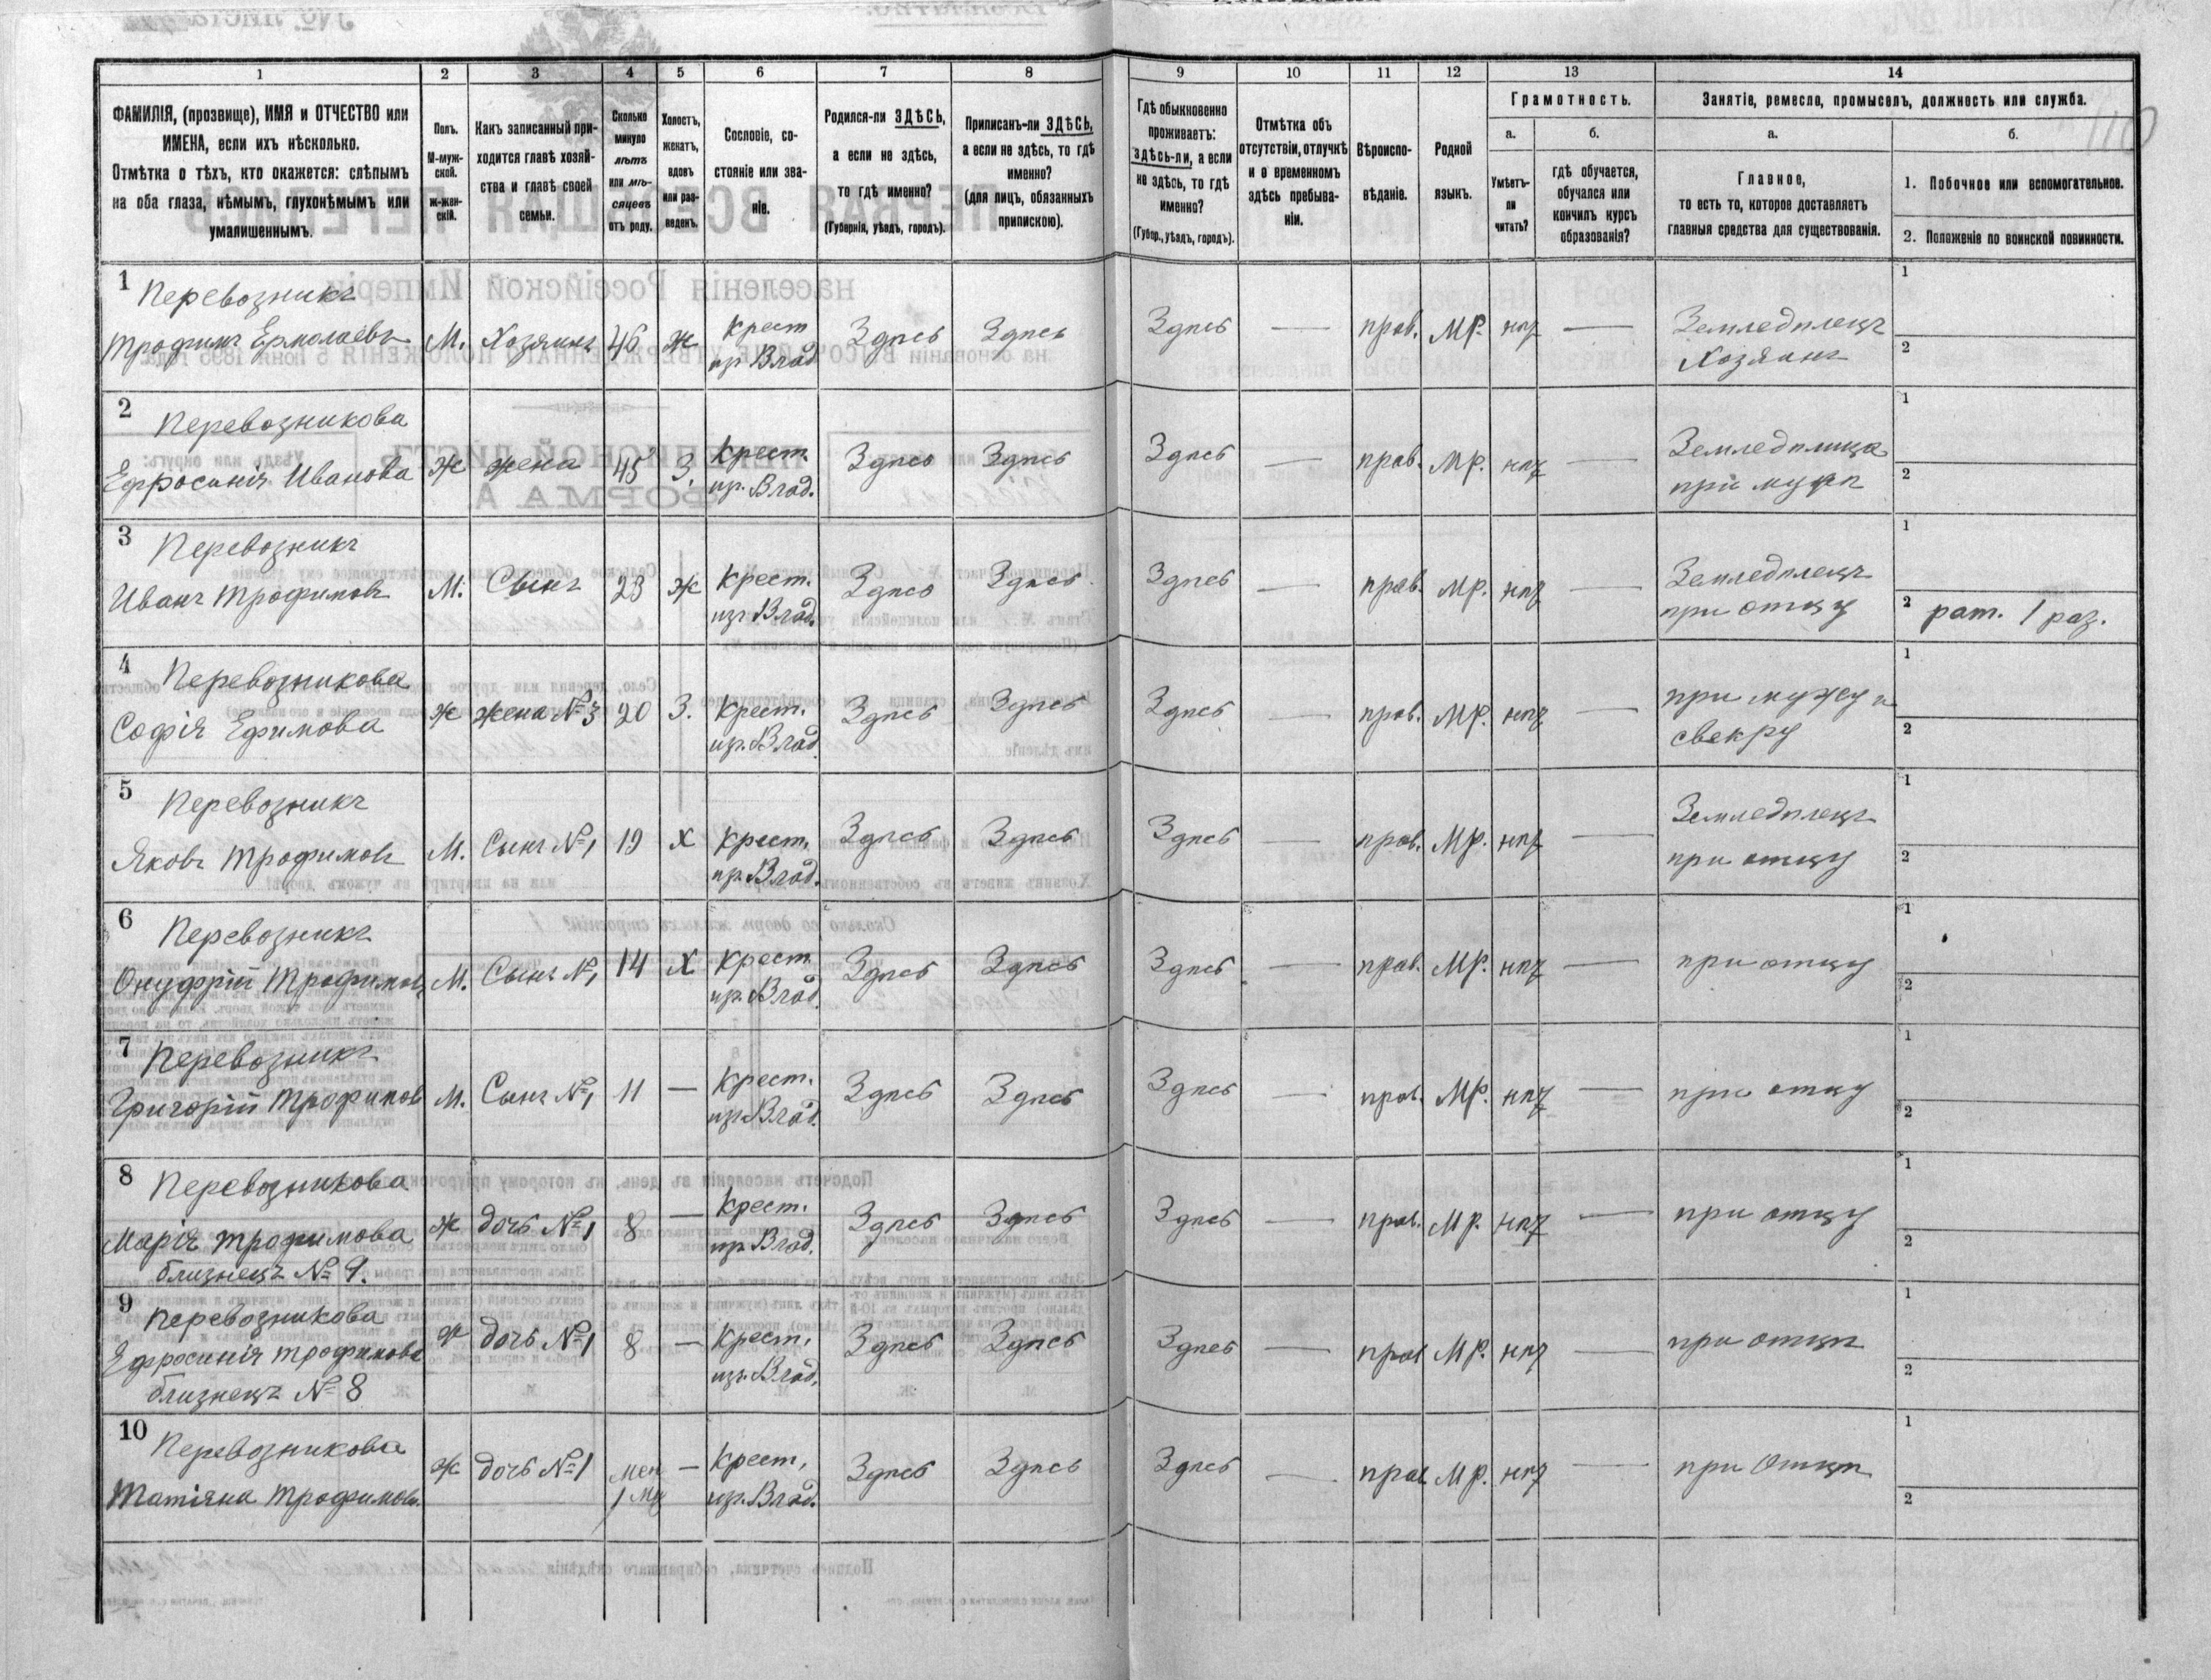 110
1 2 3 4 5 6 7 8 9 10 11 12 13 14
ФАМИЛІЯ, (прозвище), ИМЯ и ОТЧЕСТВО или
ИМЕНА, если ихъ нѣсколько.
Отмѣтка о тѣхъ, кто окажется: слѣпымъ
на оба глаза, нѣмымъ, глухонѣмымъ или
умалишеннымъ.
Полъ.
М-муж-
ской.
ж-жен-
скій.
Какъ записанный при-
ходится главѣ хозяй-
ства и главѣ своей
семьи.
Сколько
минуло
лѣтъ
или мѣ-
сяцевъ
отъ роду.
Холостъ,
женатъ,
вдовъ
или раз-
веденъ.
Сословіе, со-
стояніе или зва-
ніе.
Родился-ли ЗДѢСЬ,
а если не здѣсь,
то гдѣ именно?
(Губернія, уѣздъ, городъ).
Приписанъ-ли ЗДѢСЬ,
а если не здѣсь, то гдѣ
именно?
(для лицъ, обязанныхъ
припискою).
Гдѣ обыкновенно
проживаетъ:
здѣсь-ли, а если
не здѣсь, то гдѣ
именно?
(Губер., уѣздъ, городъ).
Отмѣтка объ
отсутствіи, отлучкѣ
и о временномъ
здѣсь пребыва-
ніи.
Вѣроиспо-
вѣданіе.
Родной
языкъ.
Грамотность.
а.
Умѣетъ-
ли
читать?
б.
гдѣ обучается,
обучался или
кончилъ курсъ
образованія?
Занятіе, ремесло, промыселъ, должность или служба.
а.
Главное,
то есть то, которое доставляетъ
главныя средства для существованія.
б.
1. Побочное или вспомогательное.
2. Положеніе по воинской повинности.
1 Перевозникъ 1
Трофимъ Ермолаевъ М. Хозяинъ 46 ж Крест. Здѣсь Здѣсь Здѣсь — прав. Мр. нѣт — Земледѣлецъ
из Влад Хозяинъ 2
2 Перевозникова 1
Ефросинія Иванова Ж жена 45 З. Крест. Здѣсь Здѣсь Здѣсь — прав. Мр. нѣт — Земледѣлица
из. Влад. при мужѣ 2
3 Перевозникъ 1
Иванъ Трофимовъ М. Сынъ 23 ж Крест. Здѣсь Здѣсь Здѣсь — прав. Мр. нѣт — Земледѣлецъ
из Влад. при отцу 2 рат. 1 раз.
4 Перевозникова 1
Софія Ефимова ж жена № 3 20 З. Крест. Здѣсь Здѣсь Здѣсь — прав. Мр. нѣт — при мужу и
из. Влад свекру 2
5 Перевозникъ 1
Яковъ Трофимовъ М. Сынъ № 1 19 Х Крест. Здѣсь Здѣсь Здѣсь — прав. Мр. нѣт — Земледѣлецъ
из. Влад. при отцу 2
6 Перевозникъ 1
Онуфрій Трофимовъ М. Сынъ № 1 14 Х Крест. Здѣсь Здѣсь Здѣсь — прав. Мр. нѣт — при отцу
из. Влад. 2
7 Перевозникъ 1
Григорій Трофимов М. Сынъ № 1 11 — Крест. Здѣсь Здѣсь Здѣсь — прав. Мр. нѣт — при отцу
из. Влад. 2
8 Перевозникова 1
Марія Трофимова ж дочь № 1 8 — Крест. Здѣсь Здѣсь Здѣсь — прав. Мр. нѣт — при отцу
близнецъ № 9. из Влад. 2
9 Перевозникова 1
Ефросинія Трофимова ж дочь № 1 8 — Крест. Здѣсь Здѣсь Здѣсь — прав Мр. нѣт — при отцѣ
близнецъ № 8 из. Влад. 2
10 Перевозникова 1
Татіяна Трофимова. ж дочь № 1 мен 1 мц — Крест. Здѣсь Здѣсь Здѣсь — прав Мр. нѣт — при Отцѣ
из. Влад. 2